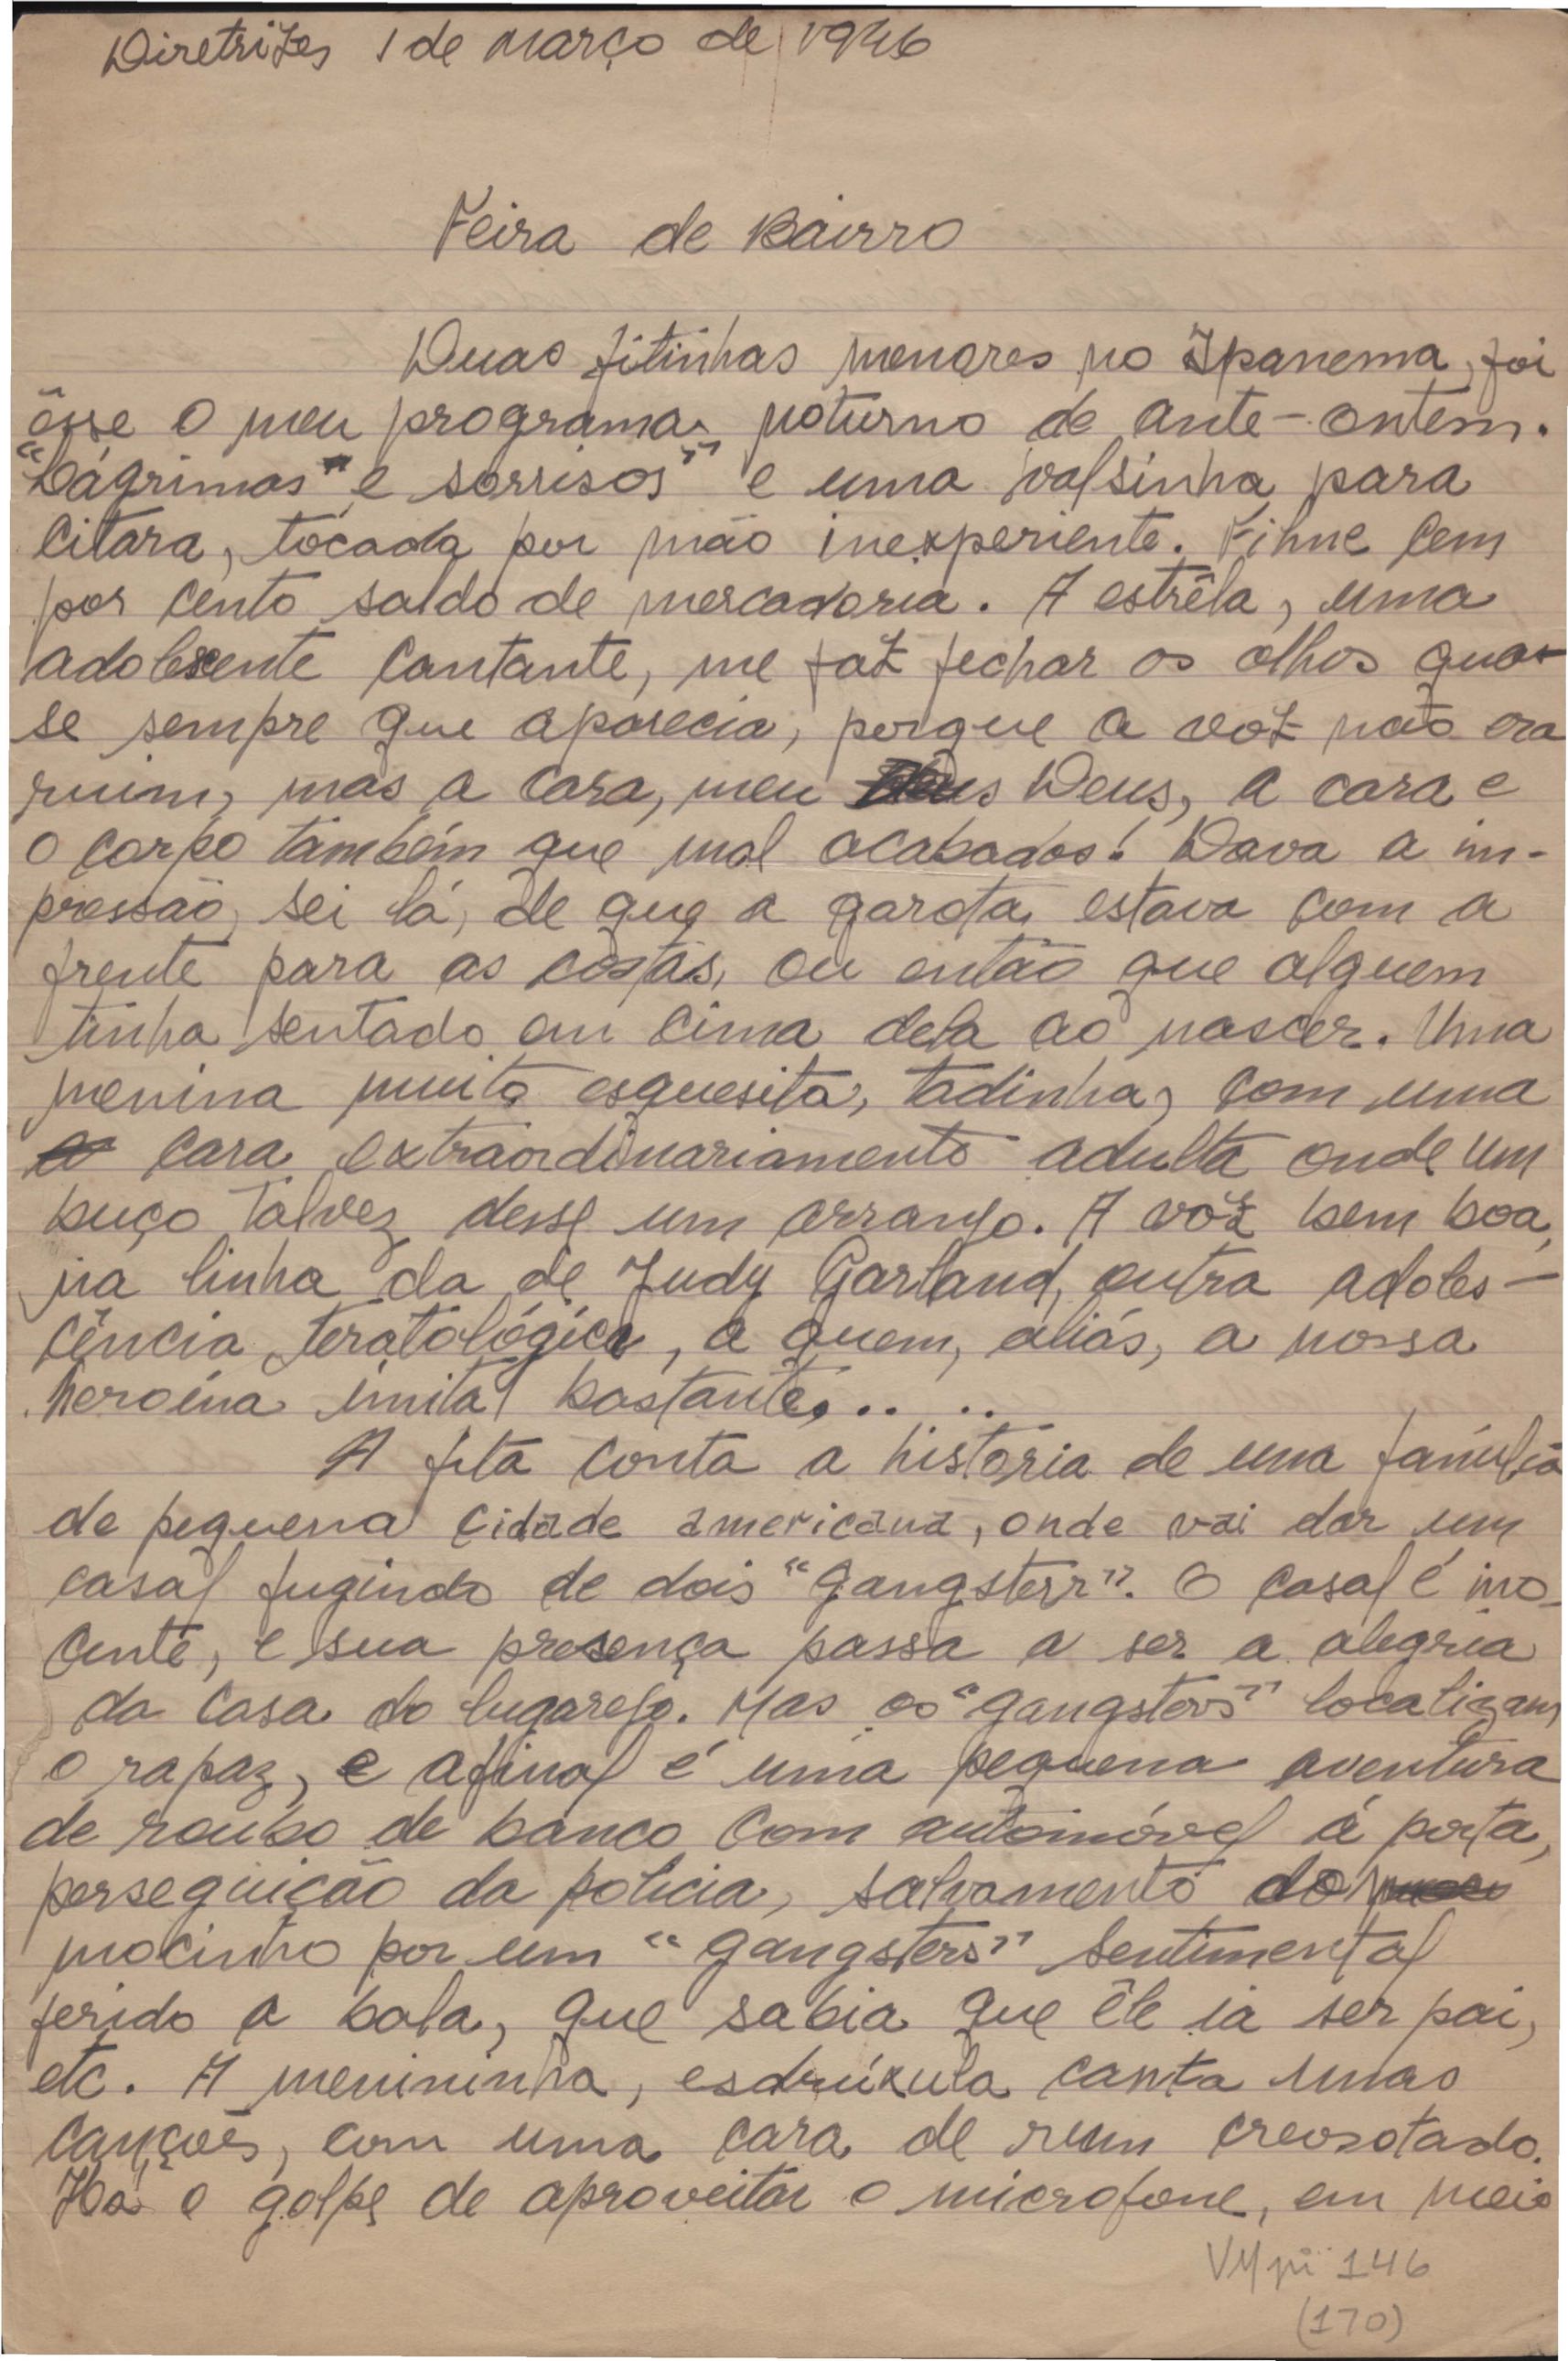 Diretrizes 1 de março de 1946
Feira de Bairro
Duas fitinhas menores no Ipanema, foi
êsse o meu programa noturno de ante-ontem.
"Lágrimas" e sorrisos" e uma valsinha para
citara, tocada por mão inexperiente. Filme cem
por cento saldo de mercadoria. A estrêla, uma
adolescente cantante, me faz fechar os olhos qua-
se sempre que aparecia, porque a voz não era
ruim, mas a cara, meu Deus, a cara e
o corpo também que mal acabados! Dava a im-
pressão, sei lá, de que a garota estava com a
frente para as costas, ou então que alguem
tinha sentado em cima dela ao nascer. Uma
menina muito esquesita, tadinha, com uma
cara extraordinariamente adulta onde um
buço talvez desse um arranjo. A voz bem boa,
na linha da de Judy Garland, outra adoles-
cência teratológica, a quem, aliás, a nossa
heroína imita bastante. .. ..
A fita conta a história de uma família
de pequena cidade americana, onde vai dar um
casal fugindo de dois "gangsterr". O casal é ino-
cente, e sua presença passa a ser a alegria
da casa do lugarejo. Mas os "gangsters" localizam
o rapaz, e afinal é uma pequena aventura
de roubo de banco com automóvel à porta,
perseguição da policia, salvamento do
mocinho por um "gangsters" sentimental
ferido a bala, que sabia que êle ia ser pai,
etc. A menininha, esdrúxula canta umas
canções, com uma cara de rum creosotado.
Há o golpe de aproveitar o microfone, em meio
VMpi 146
(170)